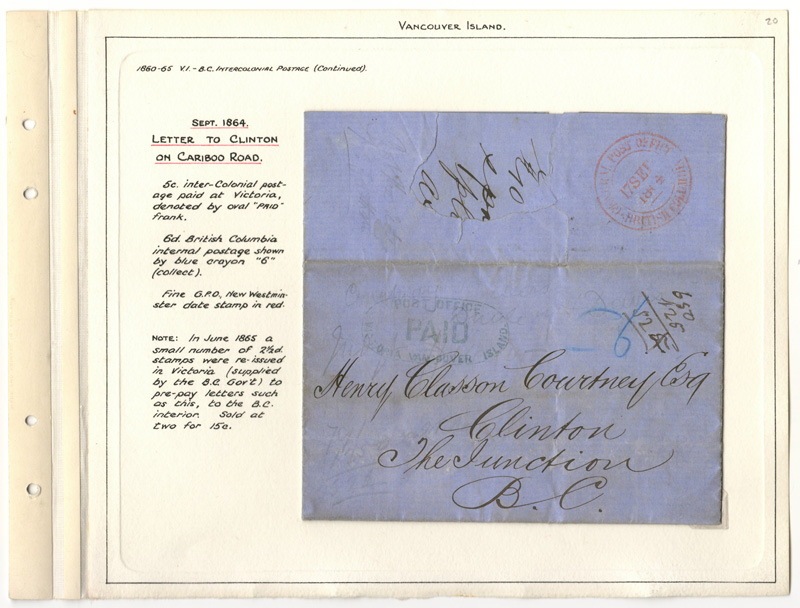 VANCOUVER ISLAND.
20
1860-65 V.I.-B.C. INTERCOLONIAL POSTAGE (Continued).
SEPT. 1864.
LETTER TO CLINTON
ON CARIBOO ROAD.
5c. inter-Colonial post-
age paid at Victoria,
denoted by oval "PAID"
frank.
6d. British Columbia
internal postage shown
by blue crayon "6"
(collect).
Fine G.P.O., New Westmin-
ster date stamp in red.
NOTE: In June 1865 a
small number of 2½d.
stamps were re-issued
in Victoria (supplied
by the B.C. Gov't) to
pre-pay letters such
as this, to the B.C.
interior. Sold at
two for 15c.
POST OFFICE
17 SEP
186 4
POST OFFICE
PAID
VANCOUVER ISLAND
6
Henry Classon Courtney Esq
Clinton
The Junction
B. C.